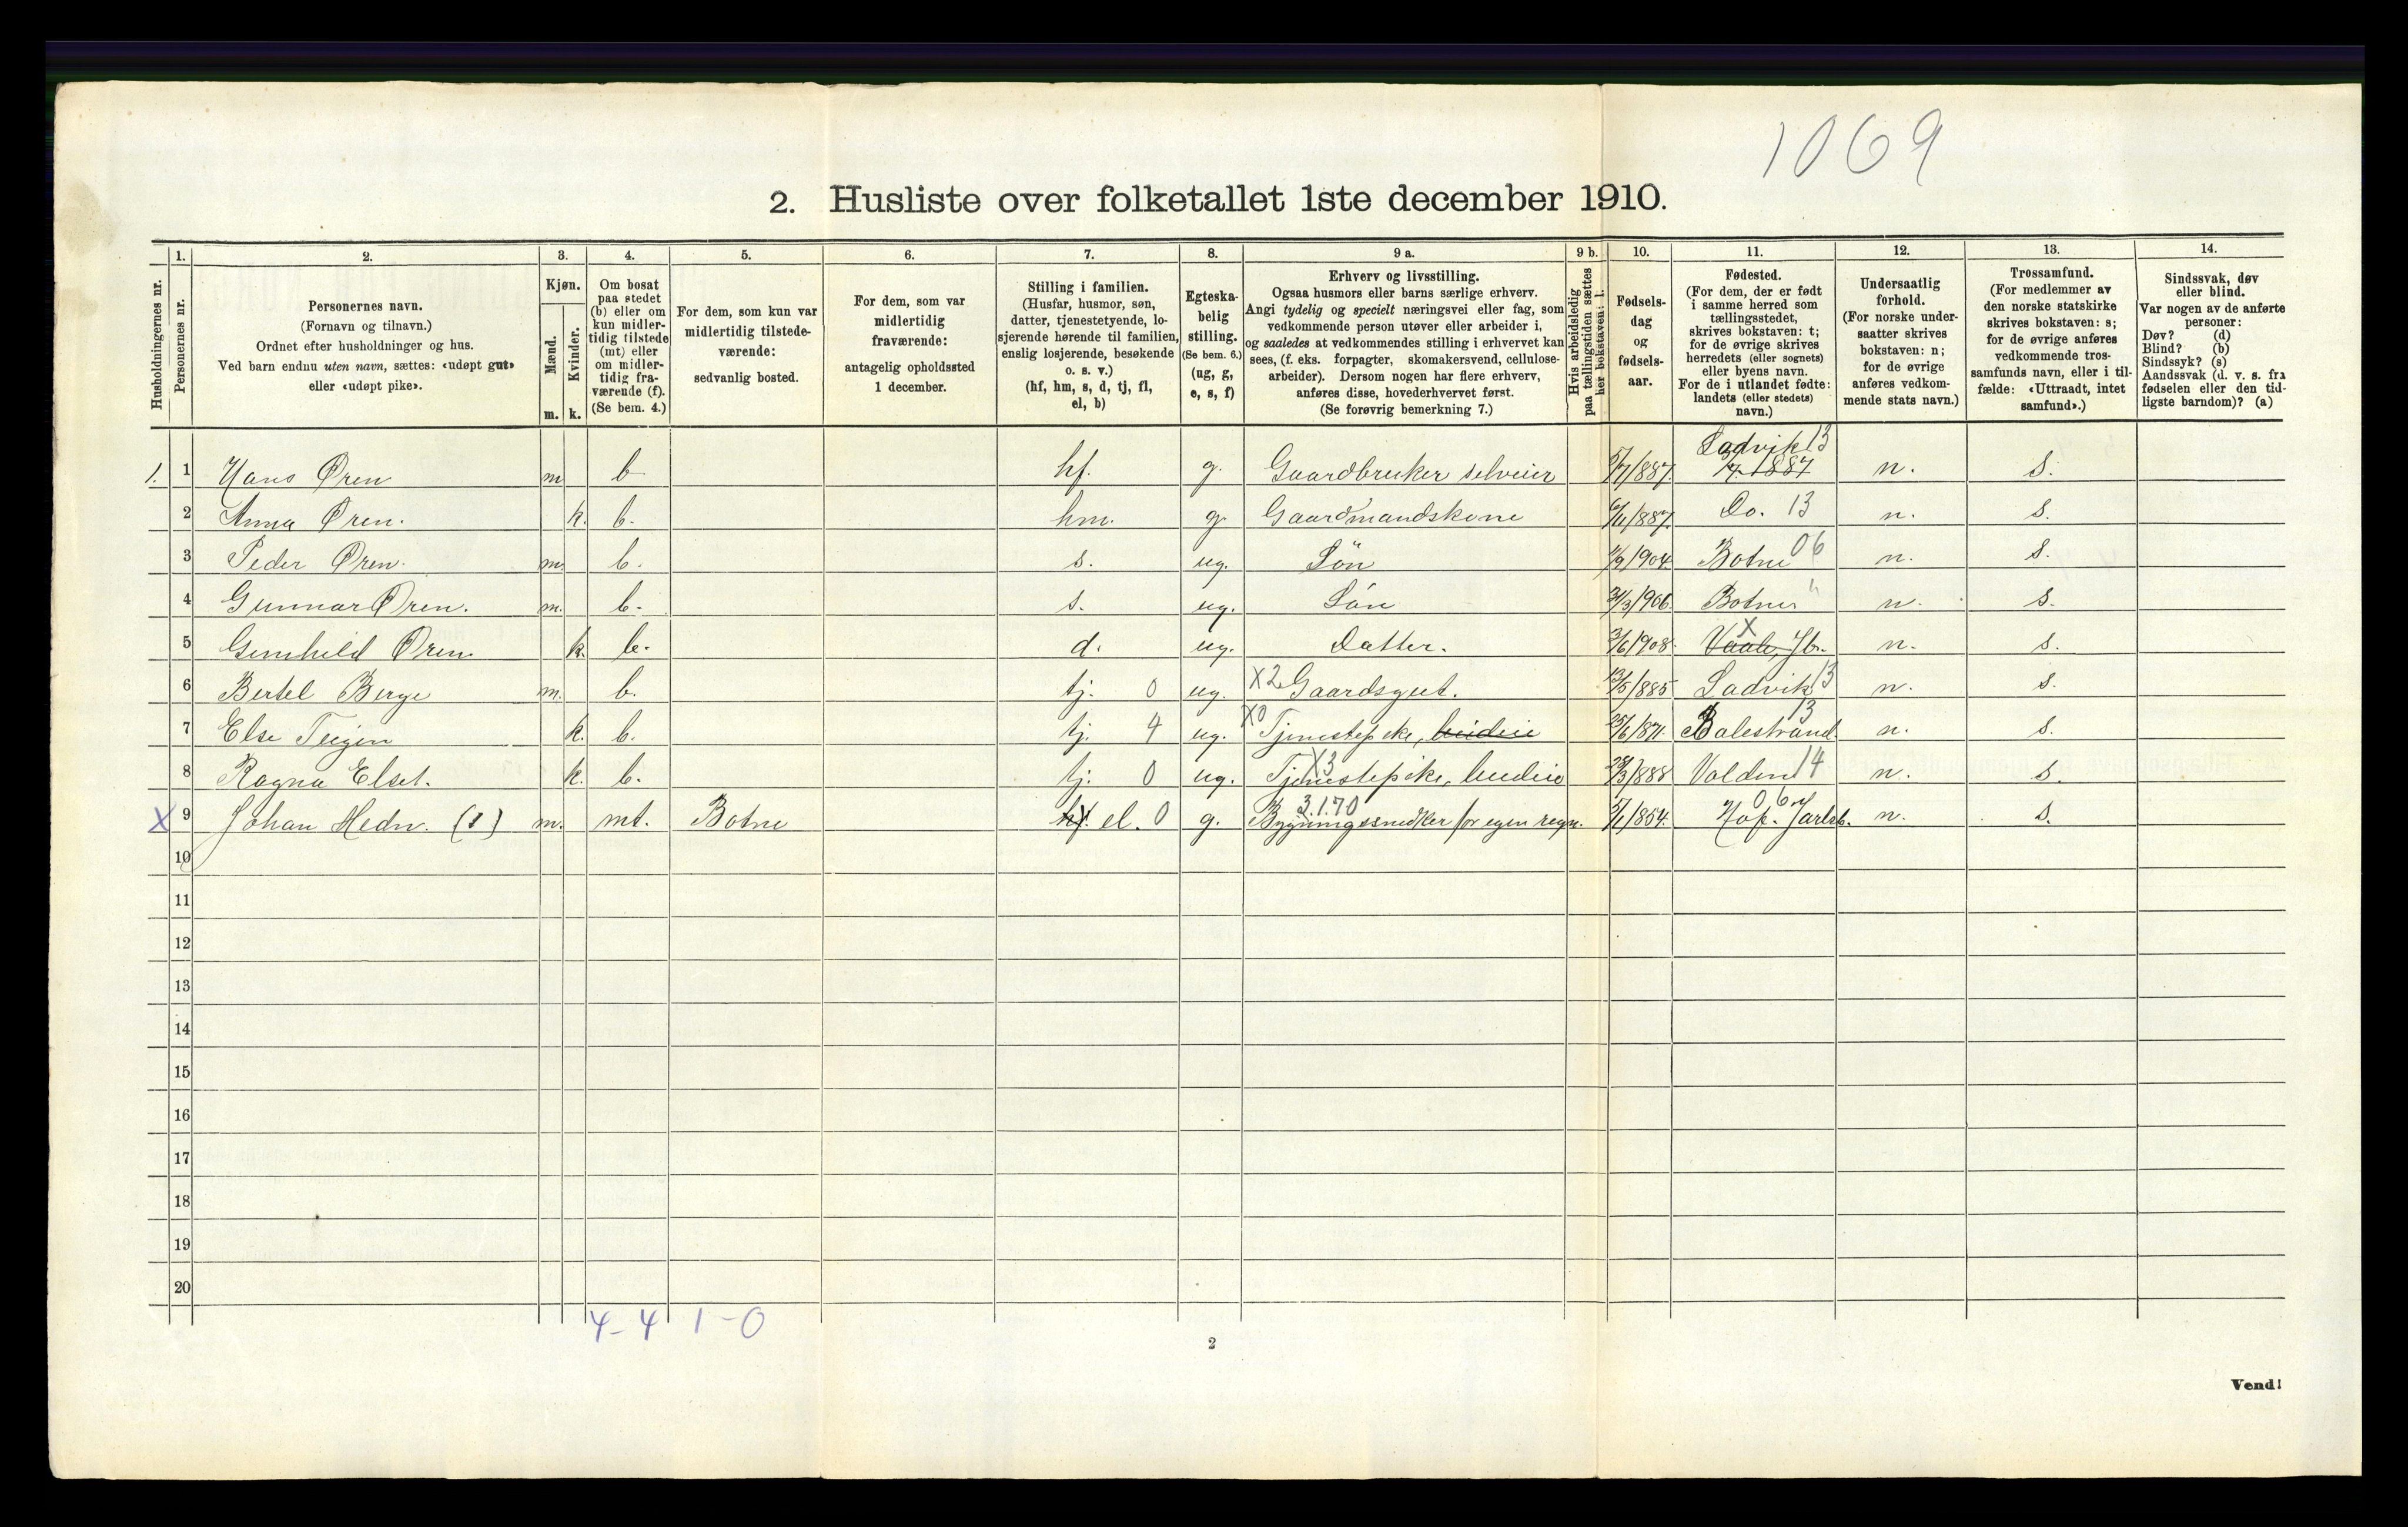 1069
2. Husliste over folketallet 1ste december 1910.
Husholdningernes nr.
1.
Personernes nr.
2.
Personernes navn.
(Fornavn og tilnavn.)
Ordnet efter husholdninger og hus.
Ved barn endnu uten navn, sættes: «udøpt gut»
eller «udøpt pike».
3.
Kjøn.
Mænd.
Kvinder.
m. k.
4.
Om bosat
paa stedet
(b) eller om
kun midler-
tidig tilstede
(mt) eller
om midler-
tidig fra-
værende (f).
(Se bem. 4.)
5.
For dem, som kun var
midlertidig tilstede-
værende:
sedvanlig bosted.
6.
For dem, som var
midlertidig
fraværende:
antagelig opholdssted
1 december.
7.
Stilling i familien.
(Husfar, husmor, søn,
datter, tjenestetyende, lo-
sjerende hørende til familien,
enslig losjerende, besøkende
o. s. v.)
(hf, hm, s, d, tj, fl,
el, b)
8.
Egteska-
belig
stilling.
(Se bem. 6.)
(ug, g,
e, s, f)
9 a.
Erhverv og livsstilling.
Ogsaa husmors eller barns særlige erhverv.
Angi tydelig og specielt næringsvei eller fag, som
vedkommende person utøver eller arbeider i,
og saaledes at vedkommendes stilling i erhvervet kan
sees, (f. eks. forpagter, skomakersvend, cellulose-
arbeider). Dersom nogen har flere erhverv,
anføres disse, hovederhvervet først.
(Se forøvrig bemerkning 7.)
9 b.
Hvis arbeidsledig
paa tællingstiden sættes
her bokstaven: l.
10.
Fødsels-
dag
og
fødsels-
aar.
11.
Fødested.
(For dem, der er født
i samme herred som
tællingsstedet,
skrives bokstaven: t;
for de øvrige skrives
herredets (eller sognets)
eller byens navn.
For de i utlandet fødte:
landets (eller stedets)
navn.)
12.
Undersaatlig
forhold.
(For norske under-
saatter skrives
bokstaven: n;
for de øvrige
anføres vedkom-
mende stats navn.)
13.
Trossamfund.
(For medlemmer av
den norske statskirke
skrives bokstaven: s;
for de øvrige anføres
vedkommende tros-
samfunds navn, eller i til-
fælde: «Uttraadt, intet
samfund».)
14.
Sindssvak, døv
eller blind.
Var nogen av de anførte
personer:
Døv? (d)
Blind? (b)
Sindssyk? (s)
Aandssvak (d. v. s. fra
fødselen eller den tid-
ligste barndom)? (a)
1. 1 Hans Øren m b hf. g. Gaardbruker selveier 5/7/887. Ladvik 13 n. s.
2 Anna Øren. k. b. hm. g Gaardmandskone 6/11/887. Do. 13 n. s.
3 Peder Øren. m. b. s. ug. Søn 11/9/904 Botne 06 n. s.
4 Gunnar Øren. m. b. s. ug. Søn 21/3/906 Botne " n. s.
5 Gunhild Øren. k. b. d. ug. Datter. 3/6/908 Vaale, Jb. X n. s.
6 Bertel Berge m. b. tj. 0 ug. X2 Gaardsgut. 13/5/885 Ladvik 13 n. s.
7 Else Teigen k. b. tj. 4 ug. X0 Tjenestepike, budeie 25/6/871. Balestrand 13 n. s.
8 Ragna Elset. k. b. tj. 0 ug. X3 Tjenestepike, budeie 28/3/888 Volden 14 n. s.
X 9 Johan Hedn. (1) m. mt. Botne hf. el. 0 g. 3.1.70 Bygningssnedker for egen regn. 5/1/854. Hof. Jarlsb. 06 n. s.
10
11
12
13
14
15
16
17
18
19
20
4-4 1-0
2
Vend!